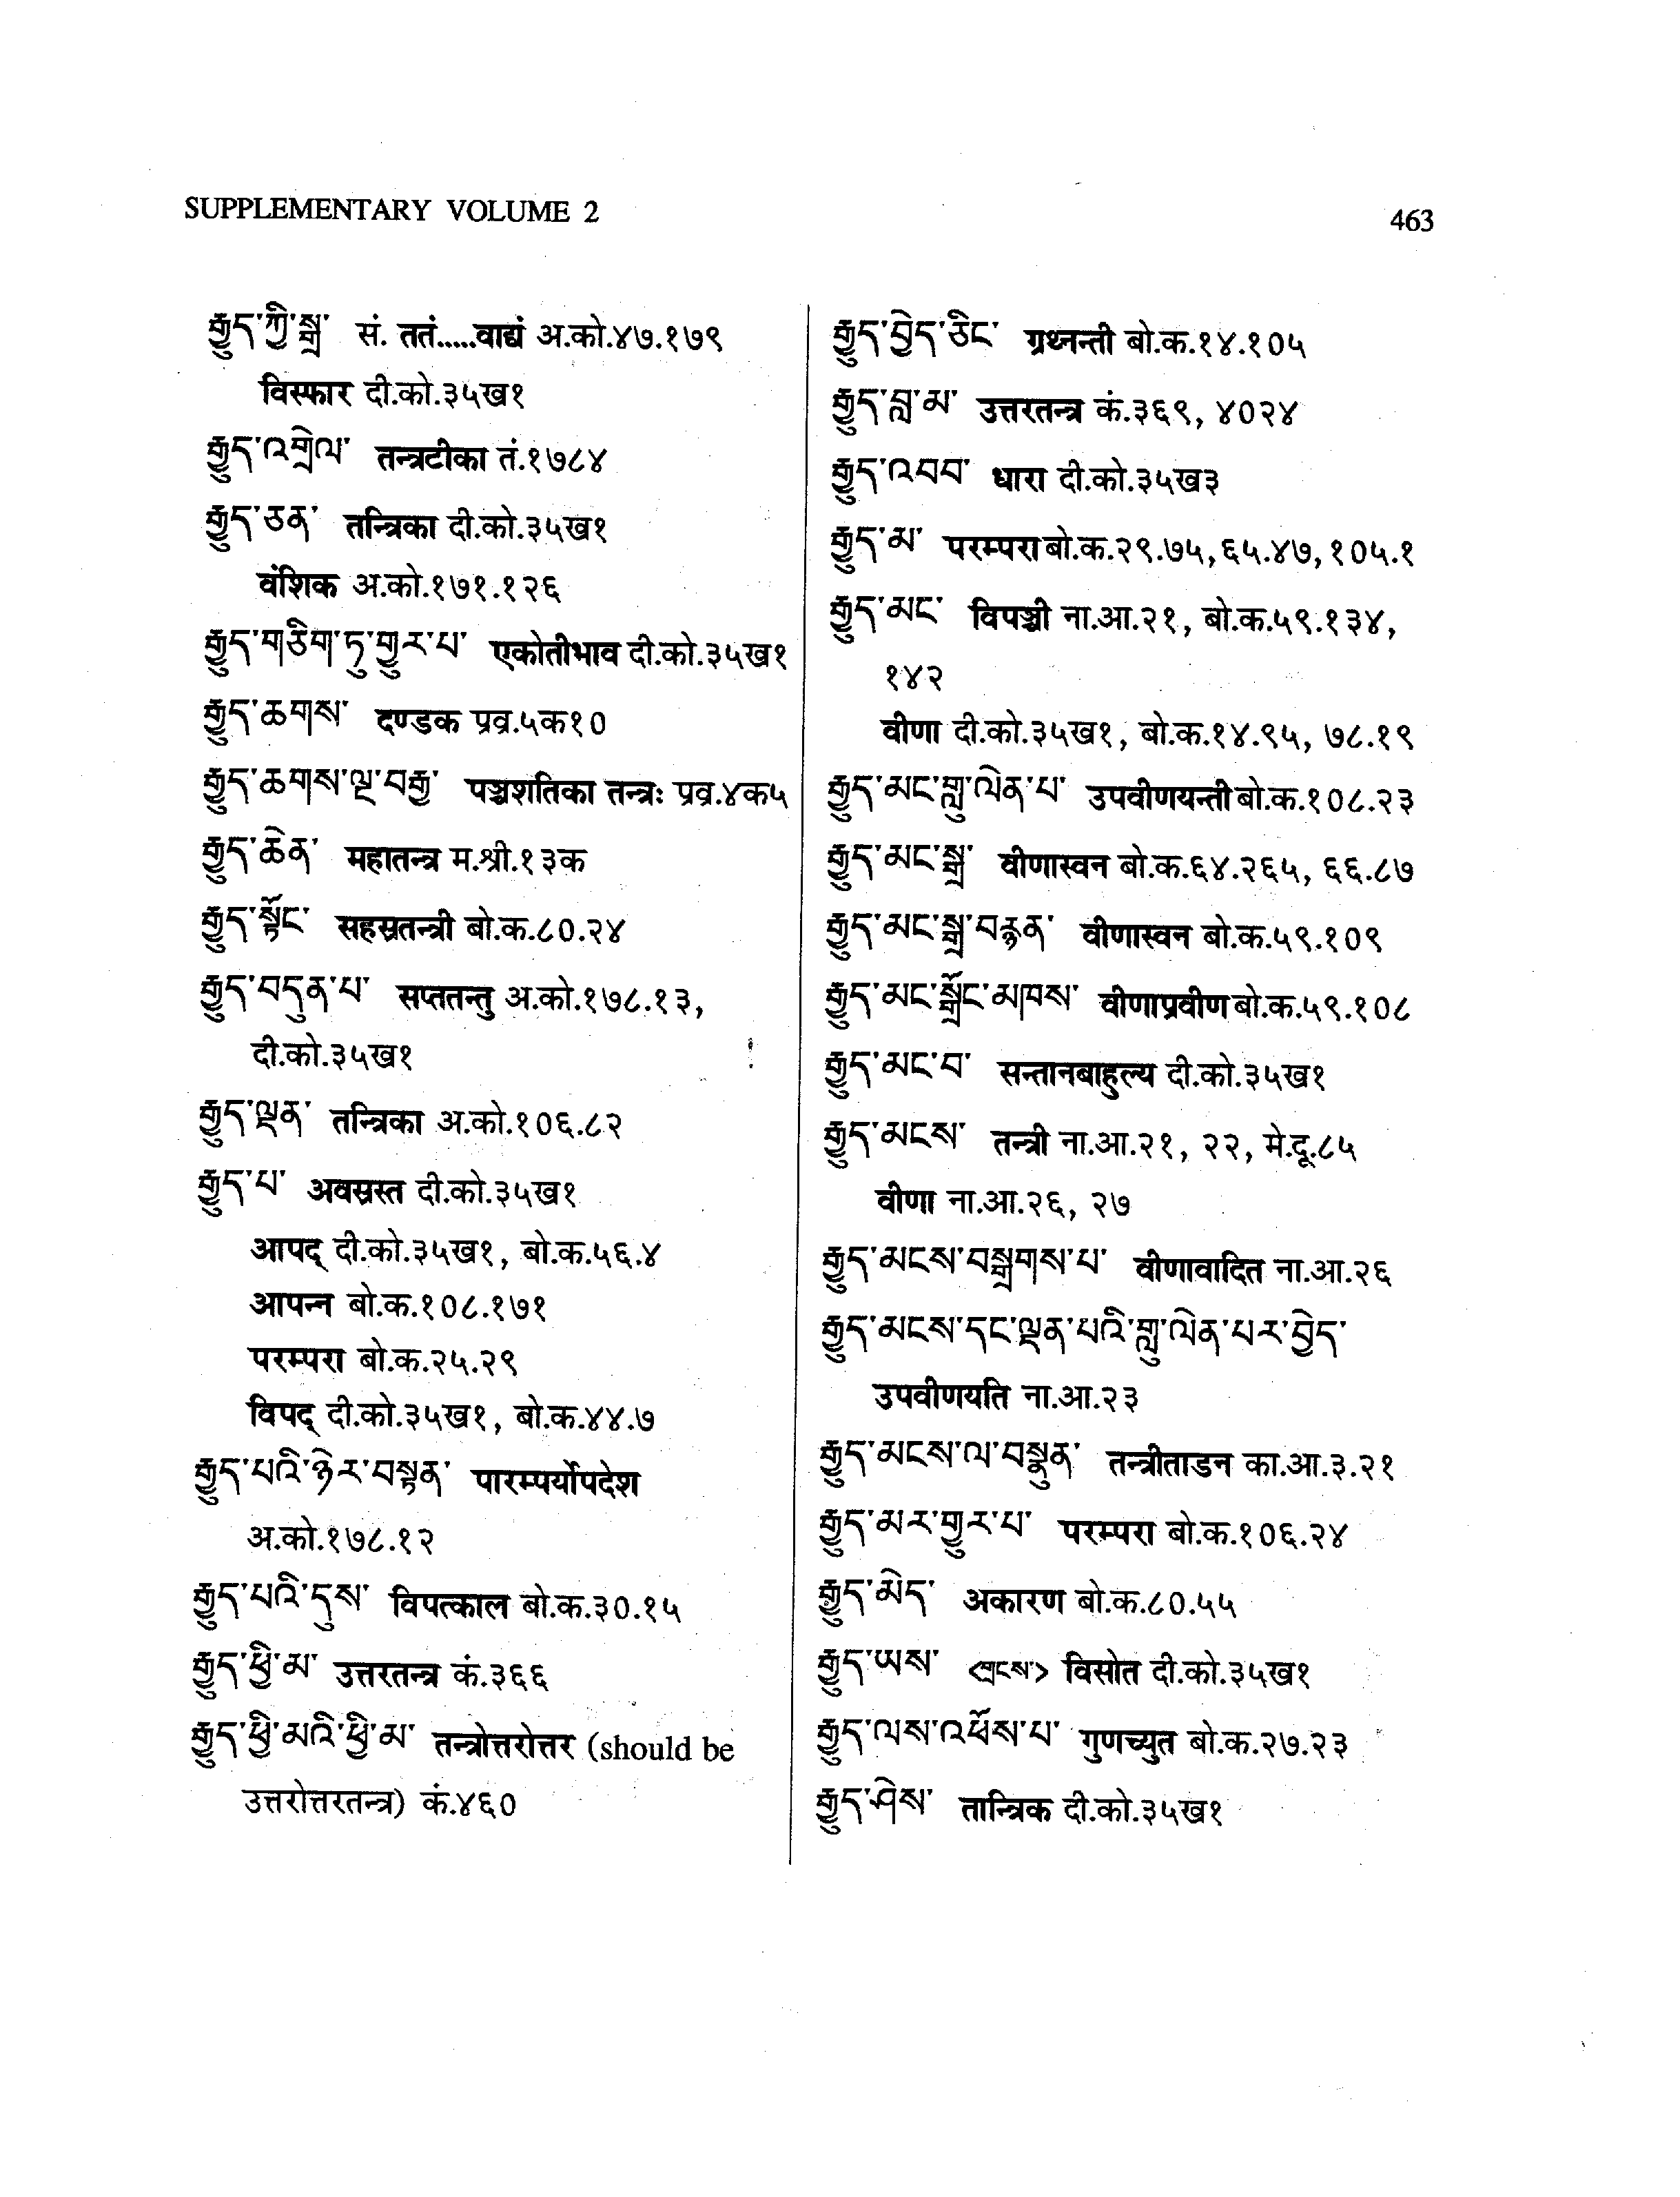 SUPPLEMENTARY VOLUME 2
463
རྒྱུད་ཀྱི་སྒྲ་ सं. ततं.....वाद्यं अ.को.४७.१७९
विस्फार दी.को.३५ख१
རྒྱུད་འགྲེལ་ तन्त्रटीका तं.१७८४
རྒྱུད་ཅན་ तन्त्रिका दी.को.३५ख१
वंशिक अ.को.१७१.१२६
རྒྱུད་གཅིག་ཏུ་གྱུར་པ་ एकोतीभाव दी.को.३५ख१
རྒྱུད་ཆགས་ दण्डक प्रव्र.५क१०
རྒྱུད་ཆགས་ལྔ་བརྒྱ་ पञ्चशतिका तन्त्रः प्रव्र.४क५
རྒྱུད་ཆེན་ महातन्त्र म.श्री.१३क
རྒྱུད་སྟོང་ सहस्रतन्त्री बो.क.८०.२४
རྒྱུད་བདུན་པ་ सप्ततन्तु अ.को.१७८.१३,
दी.को.३५ख१
རྒྱུད་ལྡན་ तन्त्रिका अ.को.१०६.८२
རྒྱུད་པ་ अवस्रस्त दी.को.३५ख१
आपद् दी.को.३५ख१, बो.क.५६.४
आपन्न बो.क.१०८.१७१
परम्परा बो.क.२५.२९
विपद् दी.को.३५ख१, बो.क.४४.७
རྒྱུད་པའི་ཉེར་བསྟན་ पारम्पर्योपदेश
अ.को.१७८.१२
རྒྱུད་པའི་དུས་ विपत्काल बो.क.३०.१५
རྒྱུད་ཕྱི་མ་ उत्तरतन्त्र कं.३६६
རྒྱུད་ཕྱི་མའི་ཕྱི་མ་ तन्त्रोत्तरोत्तर (should be
उत्तरोत्तरतन्त्र) कं.४६०
རྒྱུད་བྱེད་ཅིང་ ग्रथ्नन्ती बो.क.१४.१०५
རྒྱུད་བླ་མ་ उत्तरतन्त्र कं.३६९, ४०२४
རྒྱུད་འབབ་ धारा दी.को.३५ख३
རྒྱུད་མ་ परम्परा बो.क.२९.७५, ६५.४७, १०५.१
རྒྱུད་མང་ विपञ्ची ना.आ.२१, बो.क.५९.१३४,
१४२
वीणा दी.को.३५ख१, बो.क.१४.९५, ७८.१९
རྒྱུད་མང་གླུ་ལེན་པ་ उपवीणयन्ती बो.क.१०८.२३
རྒྱུད་མང་སྒྲ་ वीणास्वन बो.क.६४.२६५, ६६.८७
རྒྱུད་མང་སྒྲ་བརྙན་ वीणास्वन बो.क.५९.१०९
རྒྱུད་མང་སྒྲོང་མཁས་ वीणाप्रवीण बो.क.५९.१०८
རྒྱུད་མང་བ་ सन्तानबाहुल्य दी.को.३५ख१
རྒྱུད་མངས་ तन्त्री ना.आ.२१, २२, मे.दू.८५
वीणा ना.आ.२६, २७
རྒྱུད་མངས་བསྒྲགས་པ་ वीणावादित ना.आ.२६
རྒྱུད་མངས་དང་ལྡན་པའི་གླུ་ལེན་པར་བྱེད་
उपवीणयति ना.आ.२३
རྒྱུད་མངས་ལ་བསྣུན་ तन्त्रीताडन का.आ.३.२१
རྒྱུད་མར་གྱུར་པ་ परम्परा बो.क.१०६.२४
རྒྱུད་མེད་ अकारण बो.क.८०.५५
རྒྱུད་ཡས་ <གྲངས་> विसोत दी.को.३५ख१
རྒྱུད་ལས་འཕོས་པ་ गुणच्युत बो.क.२७.२३
རྒྱུད་ཤེས་ तान्त्रिक दी.को.३५ख१